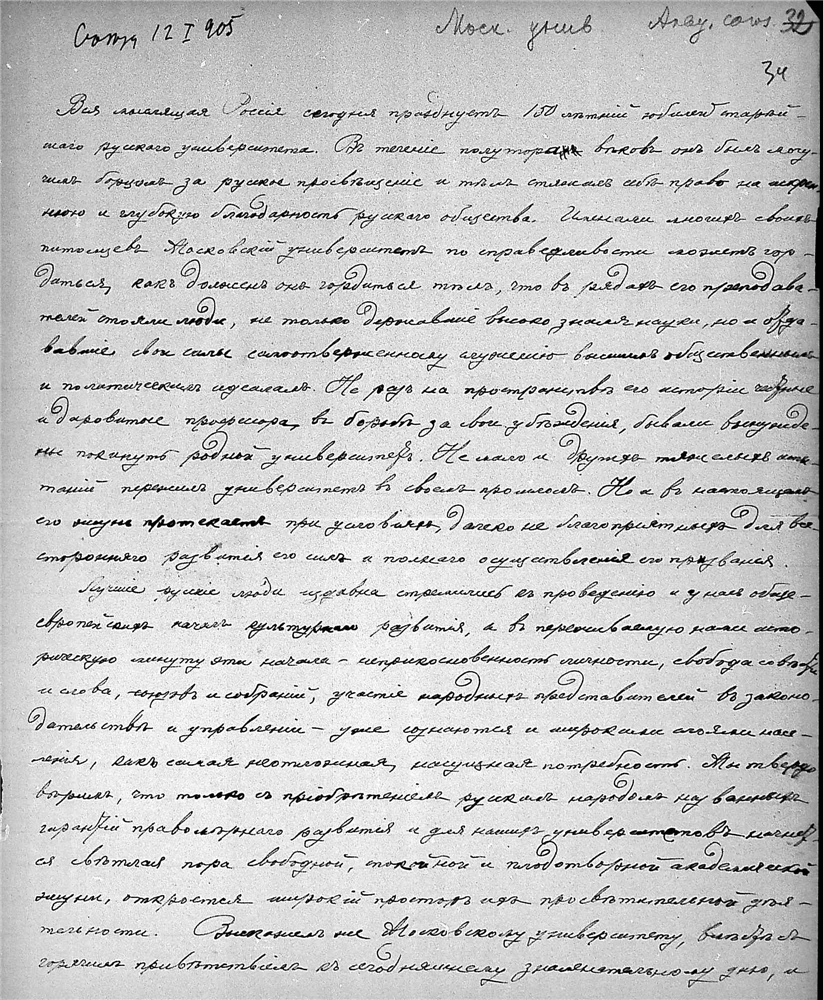 12 I 905 Моск. унив. Акад. союз. 32
34
Вся мыслящая Россія сегодня празднуетъ 150 лѣтній юбилей старѣй-
шаго русскаго университета. Въ теченіе полутора вѣковъ онъ былъ могу-
чимъ борцомъ за русское просвѣщеніе и тѣмъ стяжалъ себѣ право на искрен-
нюю и глубокую благодарность русскаго общества. Именами многихъ своихъ
питомцевъ Московскій университетъ по справедливости можетъ гор-
диться, какъ долженъ онъ гордиться тѣмъ, что въ рядахъ его преподава-
телей стояли люди, не только державшіе высоко знамя науки, но и отда-
вавшіе свои силы самоотверженному служенію высшимъ общественнымъ
и политическимъ идеаламъ. Не разъ на пространствѣ его исторіи честные
и даровитые профессора, въ борьбѣ за свои убѣжденія, бывали вынужде-
ны покинуть родной университетъ. Не мало и другихъ тяжелыхъ испы-
таній пережилъ университетъ въ своемъ прошломъ. Но и въ настоящемъ
его жизнь протекаетъ при условіяхъ, далеко не благопріятныхъ для все-
сторонняго развитія его силъ и полнаго осуществленія его призванія.
Лучшіе русскіе люди издавна стремились къ проведенію и у насъ обще-
европейскихъ началъ культурнаго развитія, а въ переживаемую нами исто-
рическую минуту эти начала – неприкосновенность личности, свобода совѣсти
и слова, союзовъ и собраній, участіе народныхъ представителей въ законо-
дательствѣ и управленіи – уже сознаются и широкими слоями насе-
ленія, какъ самая неотложная, насущная потребность. Мы твердо
вѣримъ, что только съ пріобрѣтеніемъ русскимъ народомъ названныхъ
гарантій правомѣрнаго развитія и для нашихъ университетовъ начнет-
ся свѣтлая пора свободной, спокойной и плодотворной академической
жизни, откроется широкій просторъ ихъ просвѣтительной дѣя-
тельности. Выскажемъ же Московскому университету, вмѣстѣ съ
горячимъ привѣтствіемъ къ сегодняшнему знаменательному дню, и